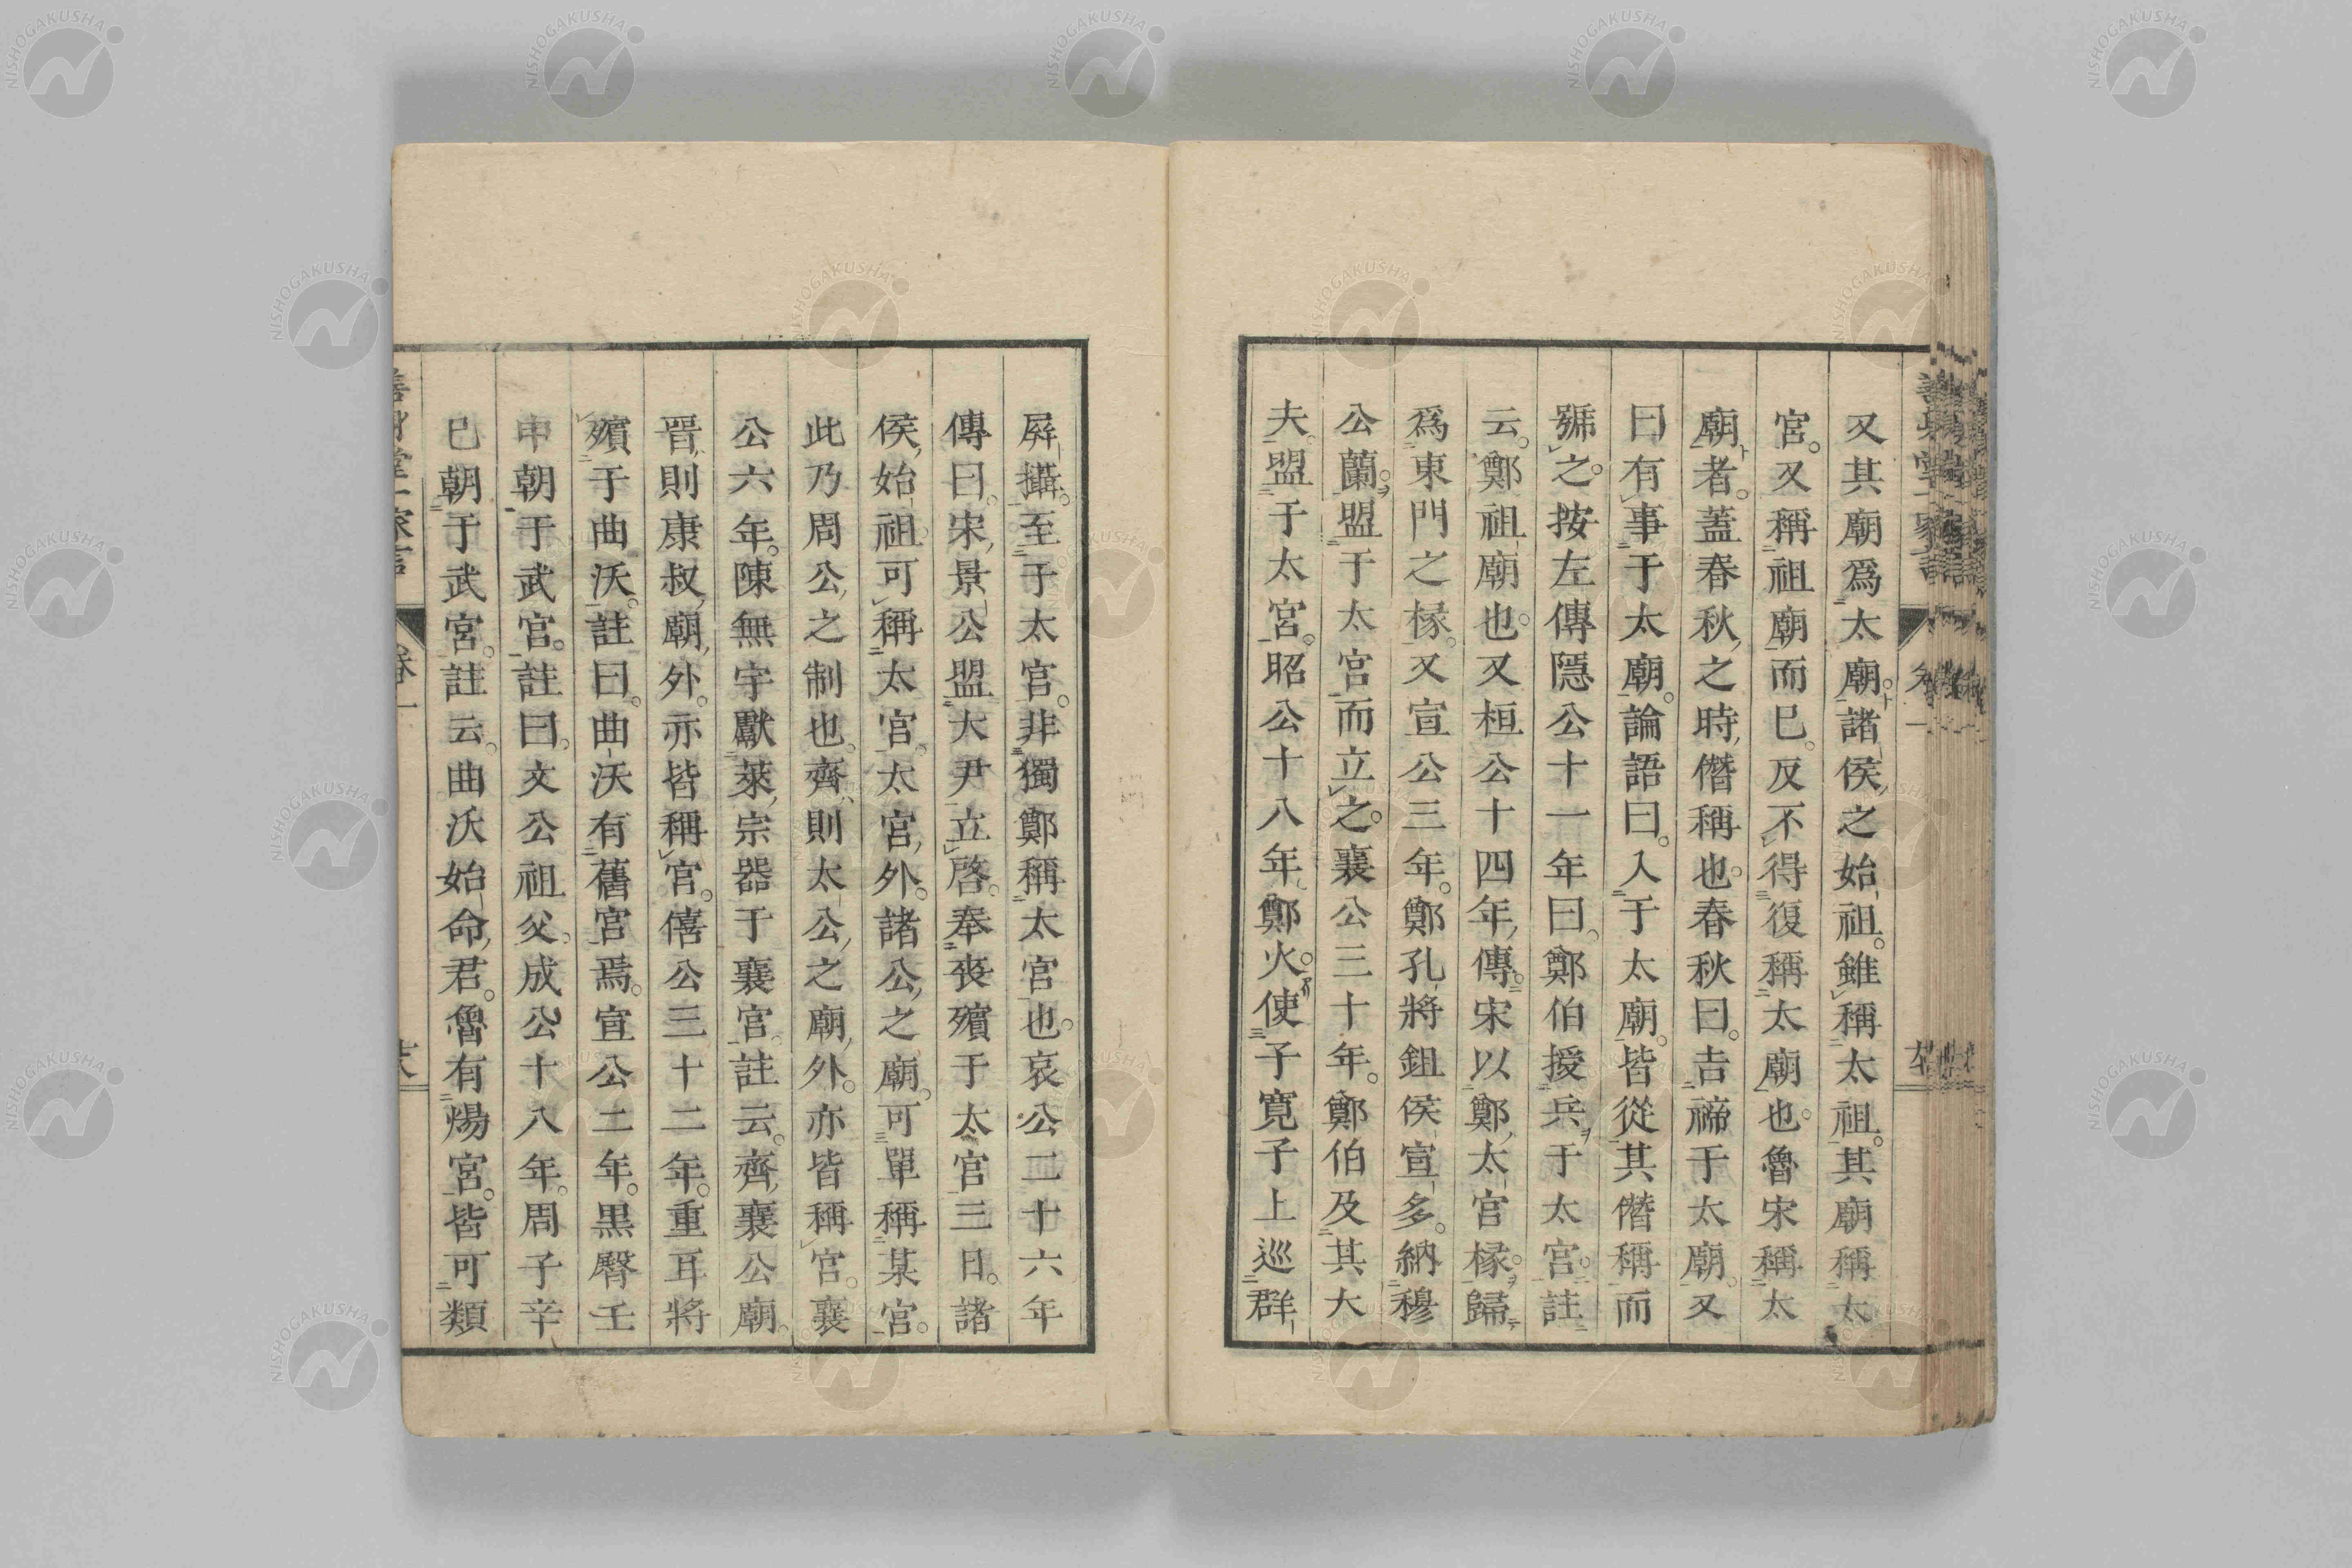 又其廟爲太廟。諸侯之始祖。雖稱太祖。其廟稱太
宮。又稱祖廟而已。反不得復稱太廟也。魯宋稱太
廟者。蓋春秋之時、僭稱也。春秋曰。吉禘于太廟。又
曰有事于太廟。論語曰。入于太廟。皆從其僭稱而
號之。按左傳隱公十一年曰。鄭伯授兵于太宮。註
云。鄭祖廟也。又桓公十四年、傳。宋以鄭、太宮椽。歸
爲東門之椽。又宣公三年。鄭孔將鉏侯宣多。納穆
公蘭。盟于太宮而立之。襄公三十年。鄭伯及其大
夫。盟于太宮。昭公十八年鄭火。使子寬子上巡群
屏攝。至于太宮。非獨鄭稱太宮也。哀公二十六年
傳曰。宋、景公盟大尹立啓。奉喪殯于太宮三日。諸
侯、始祖。可稱太宮。太宮、外。諸公、之廟。可單稱某宮。
此乃周公、之制也。齊、則太公、之廟、外。亦皆稱宮。襄
公六年。陳無宇獻萊、宗器于襄宮。註云。齊、襄公廟。
晉、則康叔、廟、外。亦皆稱宮。僖公三十二年。重耳將
殯于曲沃。註曰。曲沃有舊宮焉。宣公二年。黑臀壬
申朝于武宮。註曰。文公祖父。成公十八年。周子辛
巳朝于武宮。註云。曲沃始命、君。魯有煬宮。皆可類
卷一
NISHOGAKUSHA